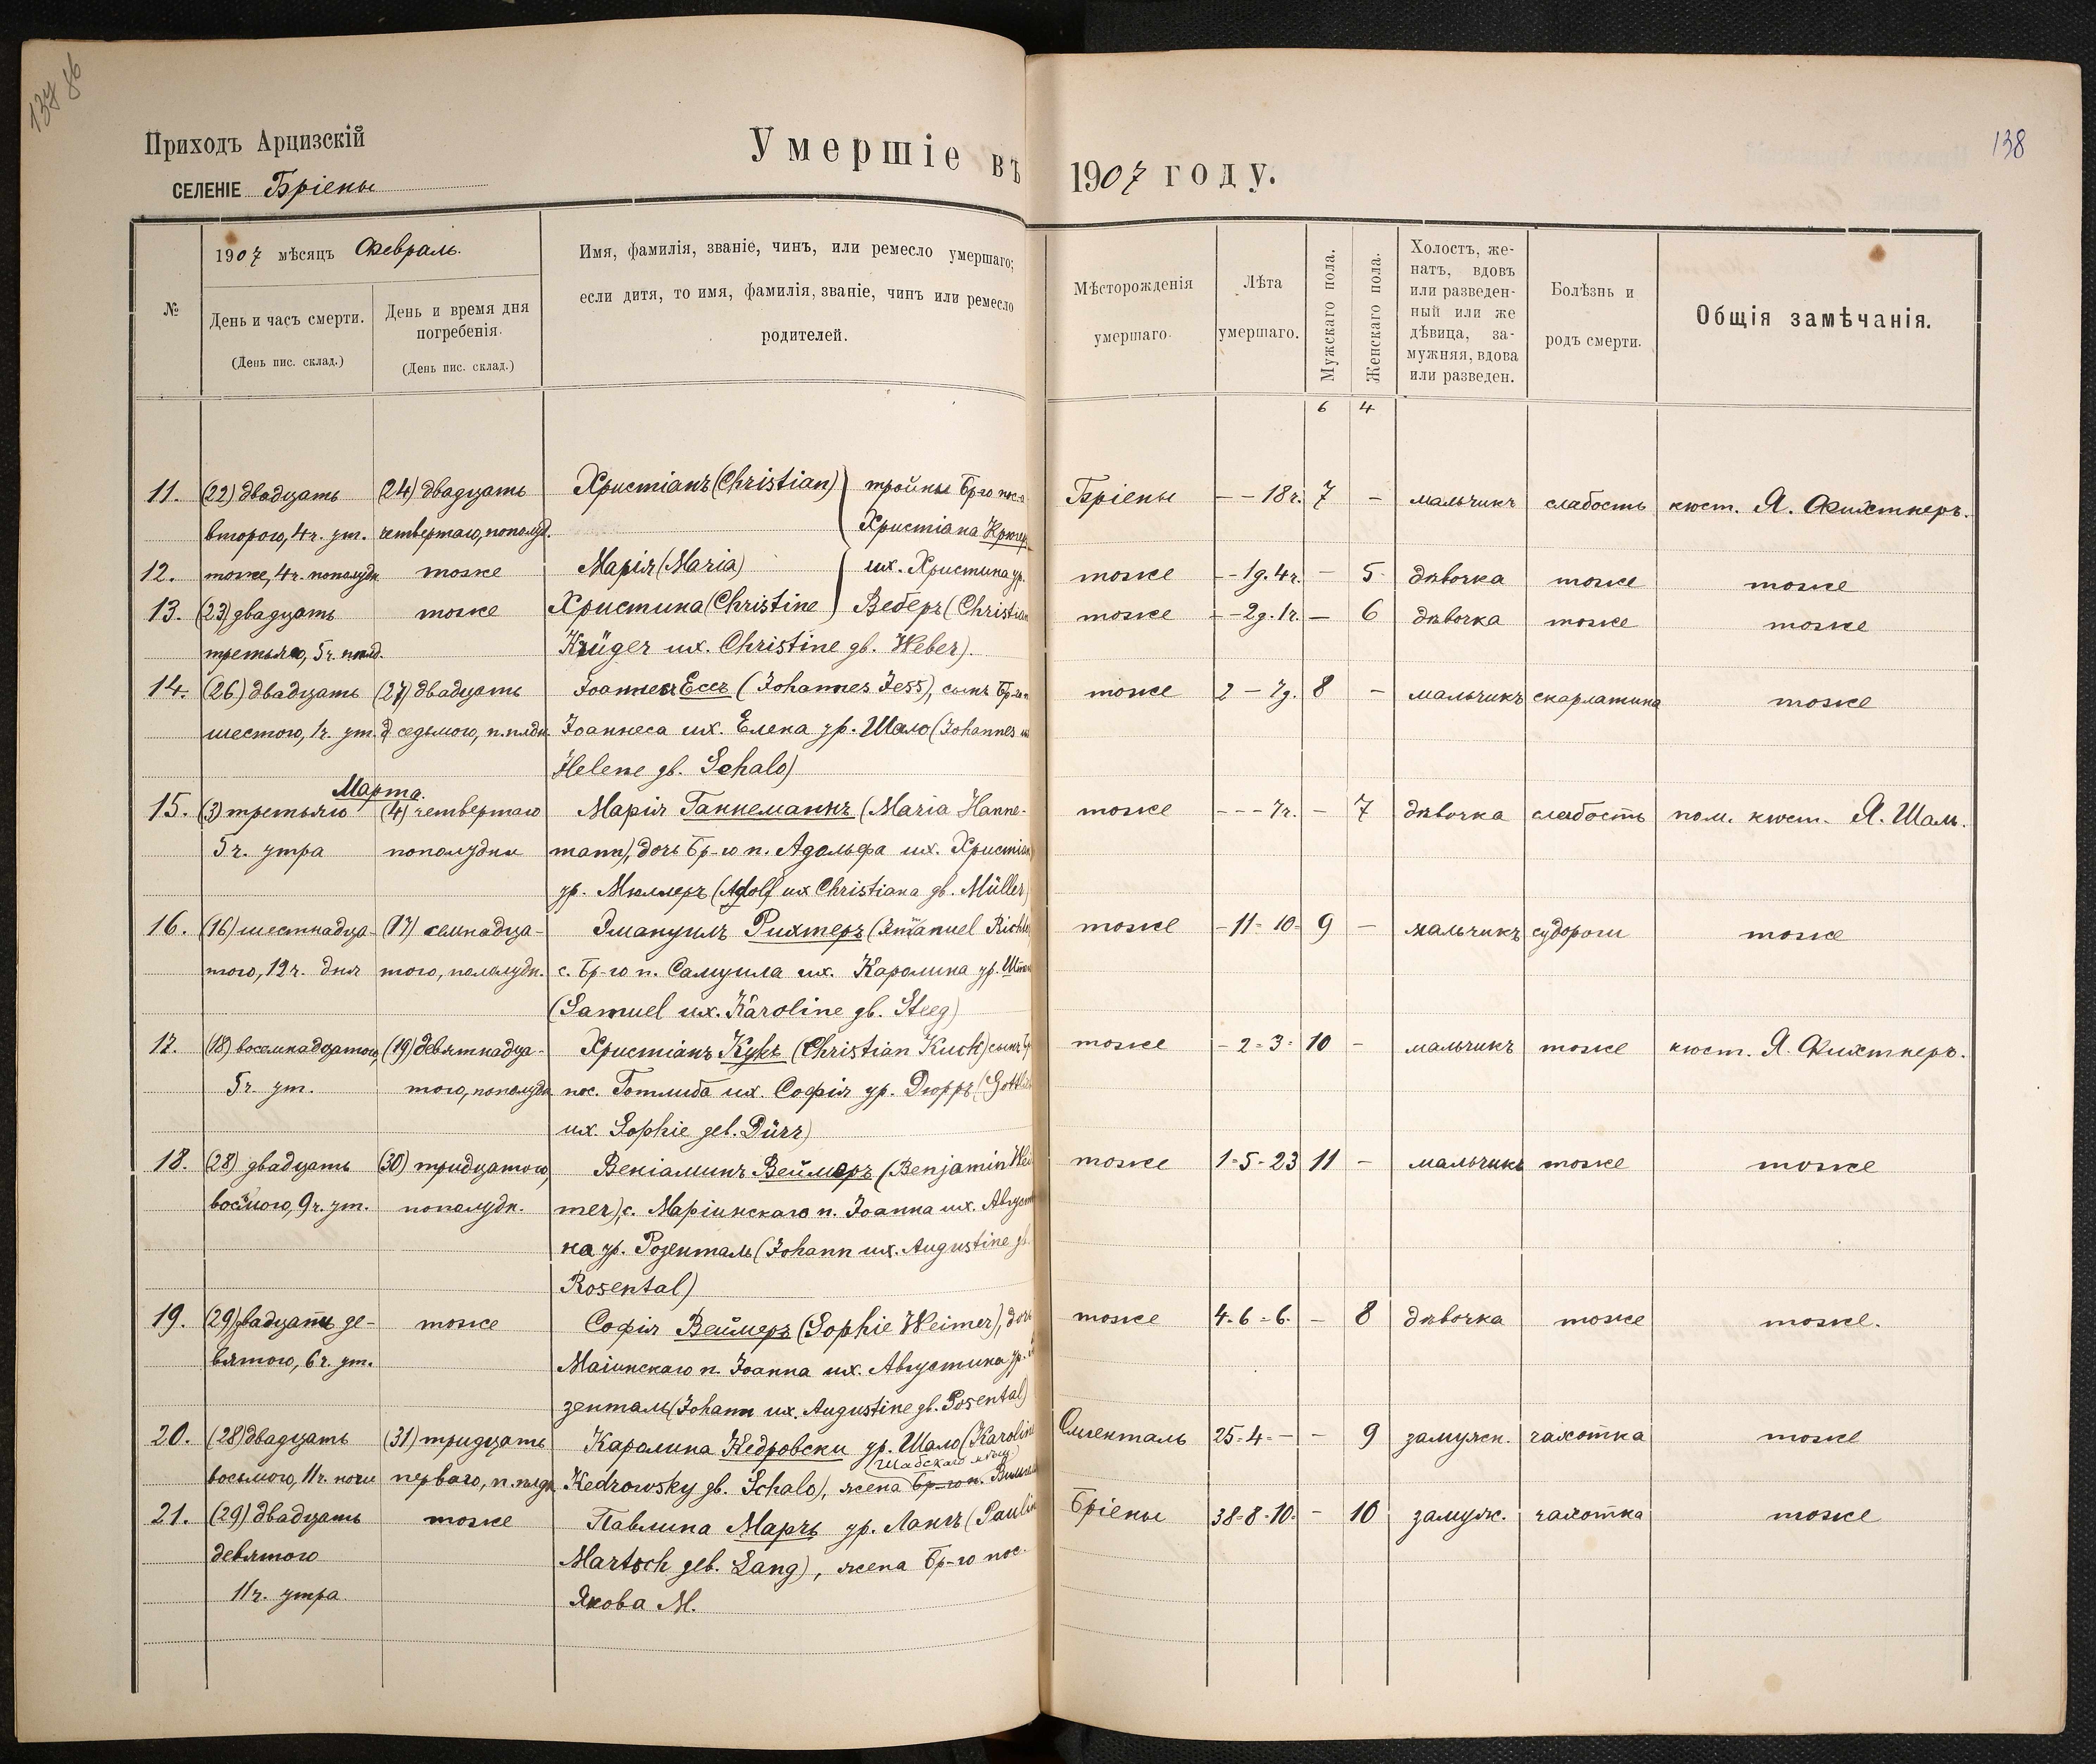 137 86
138
Приходъ Арцизскій
СЕЛЕНІЕ Бріены
Умершіе въ 1907 году.
№
1907 мѣсяцъ Февраль.
День и часъ смерти.
(День пис. склад.)
День и время дня погребенія.
(День пис. склад.)
Имя, фамилія, званіе, чинъ, или ремесло умершаго;
если дитя, то имя, фамилія, званіе, чинъ или ремесло
родителей.
Мѣсторожденія умершаго.
Лѣта умершаго.
Мужскаго пола.
Женскаго пола.
Холостъ, же-
натъ, вдовъ
или разведен-
ный или же
дѣвица, за-
мужняя, вдова
или разведен.
Болѣзнь и
родъ смерти.
Общія замѣчанія.
6 4
11. (22) двадцать (24) двадцать Христіанъ (Christian) тройны Бр-го пос. Бріены – – 18 ч. 7 – мальчикъ слабость кюст. Я. Фихтнеръ.
второго, 4 ч. ут. четвертаго, пополуд. Христіана Крюгеръ
12. тоже, 4 ч. пополудн. тоже Марія (Maria) их. Христина ур. тоже – – 1 д. 4 ч. – 5 дѣвочка тоже тоже
13. (23) двадцать тоже Христина (Christine) Веберъ (Christian тоже – – 2 д. 1 ч. – 6 дѣвочка тоже тоже
третьяго, 5 ч. плд. Krüger их. Christine gb. Weber).
14. (26) двадцать (27) двадцать Іоаннесъ Ессъ (Johannes Jess), сынъ Бр-го п. тоже 2 – 7 д. 8 – мальчикъ скарлатина тоже
шестого, 1 ч. ут. седьмого, п. плдн. Іоаннеса их. Елена ур. Шало (Johannes их
Helene gb. Schalo)
Марта.
15. (3) третьяго (4) четвертаго Марія Ганнеманнъ (Maria Hanne- тоже – – – 7 ч. – 7 дѣвочка слабость пом. кюст. Я. Шал.
5 ч. утра пополудни mann), дочь Бр-го п. Адольфа их. Христіан
ур. Мюллеръ (Adolf их Christiana gb. Müller)
16. (16) шестнадца- (17) семнадца- Эмануилъ Рихтеръ (Emanuel Richter тоже – 11 – 10 – 9 – мальчикъ судороги тоже
того, 12 ч. дня того, пополудн. с. Бр-го п. Самуила их. Каролина ур.
(Samuel их. Karoline gb. Steeg)
17. (18) восемнадцатого, (19) девятнадца- Христіанъ Кукъ (Christian Kuck) сынъ Бр тоже – 2 – 3 – 10 – мальчикъ тоже кюст. Я. Фихтнеръ.
5 ч. ут. того, пополудн. пос. Готлиба их. Софія ур. Дюрръ (Gottlieb
их. Sophie geb. Dürr)
18. (28) двадцать (30) тридцатого, Веніаминъ Веймеръ (Benjamin Wei тоже 1 – 5 – 23 11 – мальчикъ тоже тоже
восьмого, 9 ч. ут. пополудн. mer), с. Маріинскаго п. Іоанна их. Августи
на ур. Розенталь (Johann их. Augustine gb.
Rosental)
19. (29) двадцать де- тоже Софія Веймеръ (Sophie Weimer), дочь тоже 4 – 6 – 6 – – 8 дѣвочка тоже тоже.
вятого, 6 ч. ут. Маіинскаго п. Іоанна их. Августина ур.
зенталь (Johann их. Augustine gb. Rosental)
20. (28) двадцать (31) тридцать Каролина Кедровски ур. Шало (Karoline Сиченталь 25 – 4 – – – 9 замужн. чахотка тоже
Шабскаго
восьмого, 11 ч. ночи перваго, п. плдн. Kedrowsky gb. Schalo), жена Бр-го п.
21. (29) двадцать тоже Павлина Марчъ ур. Лангъ (Pauline Бріены 38 – 8 – 10 – – 10 замужн. чахотка тоже
девятого Martsch geb. Lang), жена Бр-го пос.
11 ч. утра Якова М.